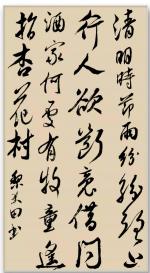 清明時節雨紛紛路上
行人欲斷魂借問
酒家何處有牧童遙
指杏花村
田书